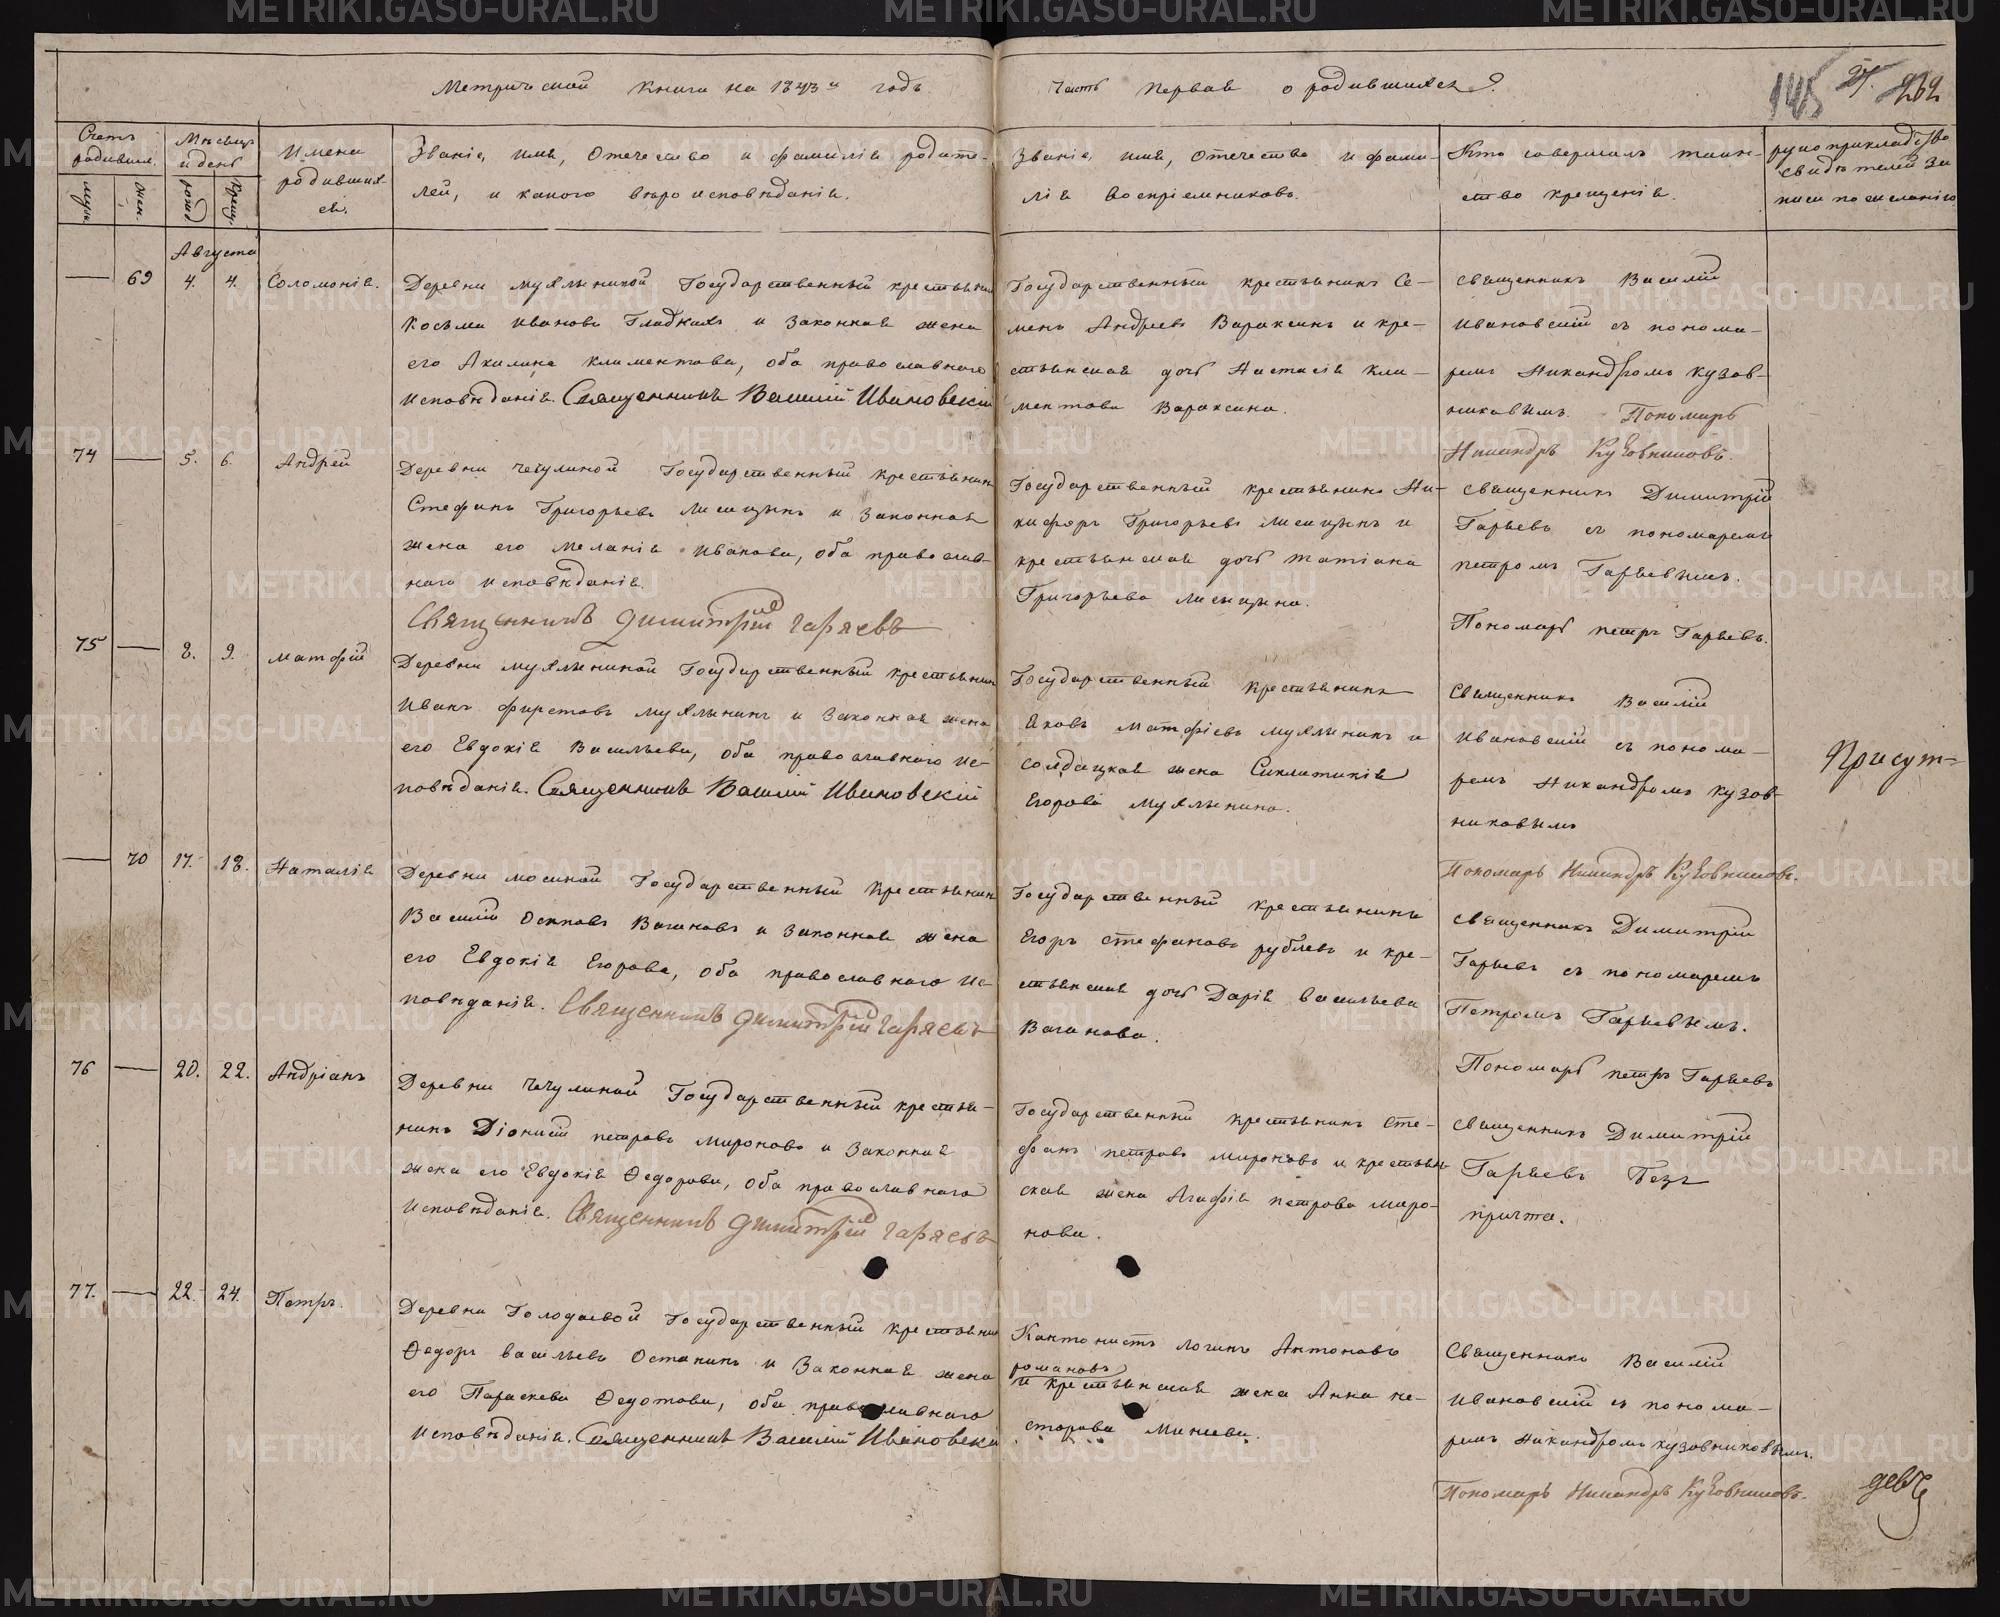 Метрической книги на 1843й годъ.
Часть первая о родившихся.
145 262
Счетъ родившихся.
муж.
жен.
Мѣсяцъ и день
рожд.
крещ.
Имена
родивших-
ся.
Званіе, имя, отечество и фамилія родите-
лей, и какого вѣроисповѣданія.
Званіе, имя, отечество и фами-
лія воспріемниковъ.
Кто совершалъ таин-
ство крещенія.
рукоприкладство
свидѣтелей за
писи по желанію
Августа
— 69 4. 4. Соломонія.
Деревни Мухлыниной Государственный крестьянинъ
Косьма Ивановъ Гладкихъ и законная жена
его Акилина Климентова, оба православнаго
исповѣданія. Священникъ Василій Ивановскій
Государственный крестьянинъ Се-
менъ Андреевъ Вараксинъ и кре-
стьянская дочь Настасія Кли-
ментова Вараксина.
Священникъ Василій
Ивановскій съ понома-
ремъ Никандромъ Кузов-
никовымъ. Пономарь
Никандръ Кузовниковъ.
74 — 5. 6. Андрей
Деревни Чечулиной Государственный крестьянинъ
Стефанъ Григорьевъ Лисицынъ и законная
жена его Меланія Иванова, оба православ-
наго исповѣданія.
Священникъ Димитрій Гаряевъ
Государственный крестьянинъ Ни-
кифоръ Григорьевъ Лисицынъ и
крестьянская дочь Татіана
Григорьева Лисицына.
Священникъ Димитрій
Гаряевъ съ пономаремъ
Петромъ Гаряевымъ.
Пономарь Петръ Гаряевъ.
75 — 8. 9. Матфій
Деревни Мухлыниной Государственный крестьянинъ
Иванъ Фирстовъ Мухлынинъ и законная жена
его Евдокія Васильева, оба православнаго ис-
повѣданія. Священникъ Василій Ивановскій
Государственный крестьянинъ
Яковъ Матфіевъ Мухлынинъ и
солдацкая жена Синклитикія
Егорова Мухлынина.
Священникъ Василій
Ивановскій съ понома-
ремъ Никандромъ Кузов-
никовымъ
Пономарь Никандръ Кузовниковъ.
Присут-
— 70 17. 18. Наталія
Деревни Мосиной Государственный крестьянинъ
Василій Осиповъ Вагановъ и законная жена
его Евдокія Егорова, оба православнаго ис-
повѣданія. Священникъ Димитрій Гаряевъ
Государственный крестьянинъ
Егоръ Стефановъ Рублевъ и кре-
стьянская дочь Дарія Васильева
Ваганова.
Священникъ Димитрій
Гаряевъ съ пономаремъ
Петромъ Гаряевымъ.
Пономарь Петръ Гаряевъ
76 — 20. 22. Андріанъ
Деревни Чечулиной Государственный крестья-
нинъ Діонисій Петровъ Мироновъ и законная
жена его Евдокія Ѳедорова, оба православнаго
исповѣданія. Священникъ Димитрій Гаряевъ
Государственный крестьянинъ Сте-
фанъ Петровъ Мироновъ и крестьян-
ская жена Агафія Петрова Миро-
нова.
Священникъ Димитрій
Гаряевъ безъ
причта.
77. — 22. 24. Петръ.
Деревни Голодаевой Государственный крестьянинъ
Ѳедоръ Васильевъ Останинъ и законная жена
его Параскева Ѳедотова, оба православнаго
исповѣданія. Священникъ Василій Ивановскій
Кантонистъ Логинъ Антоновъ
Романовъ
и крестьянская жена Анна Не-
сторова Минеева.
Священникъ Василій
Ивановскій съ понома-
ремъ Никандромъ Кузовниковымъ.
Пономарь Никандръ Кузовниковъ.
METRIKI.GASO-URAL.RU